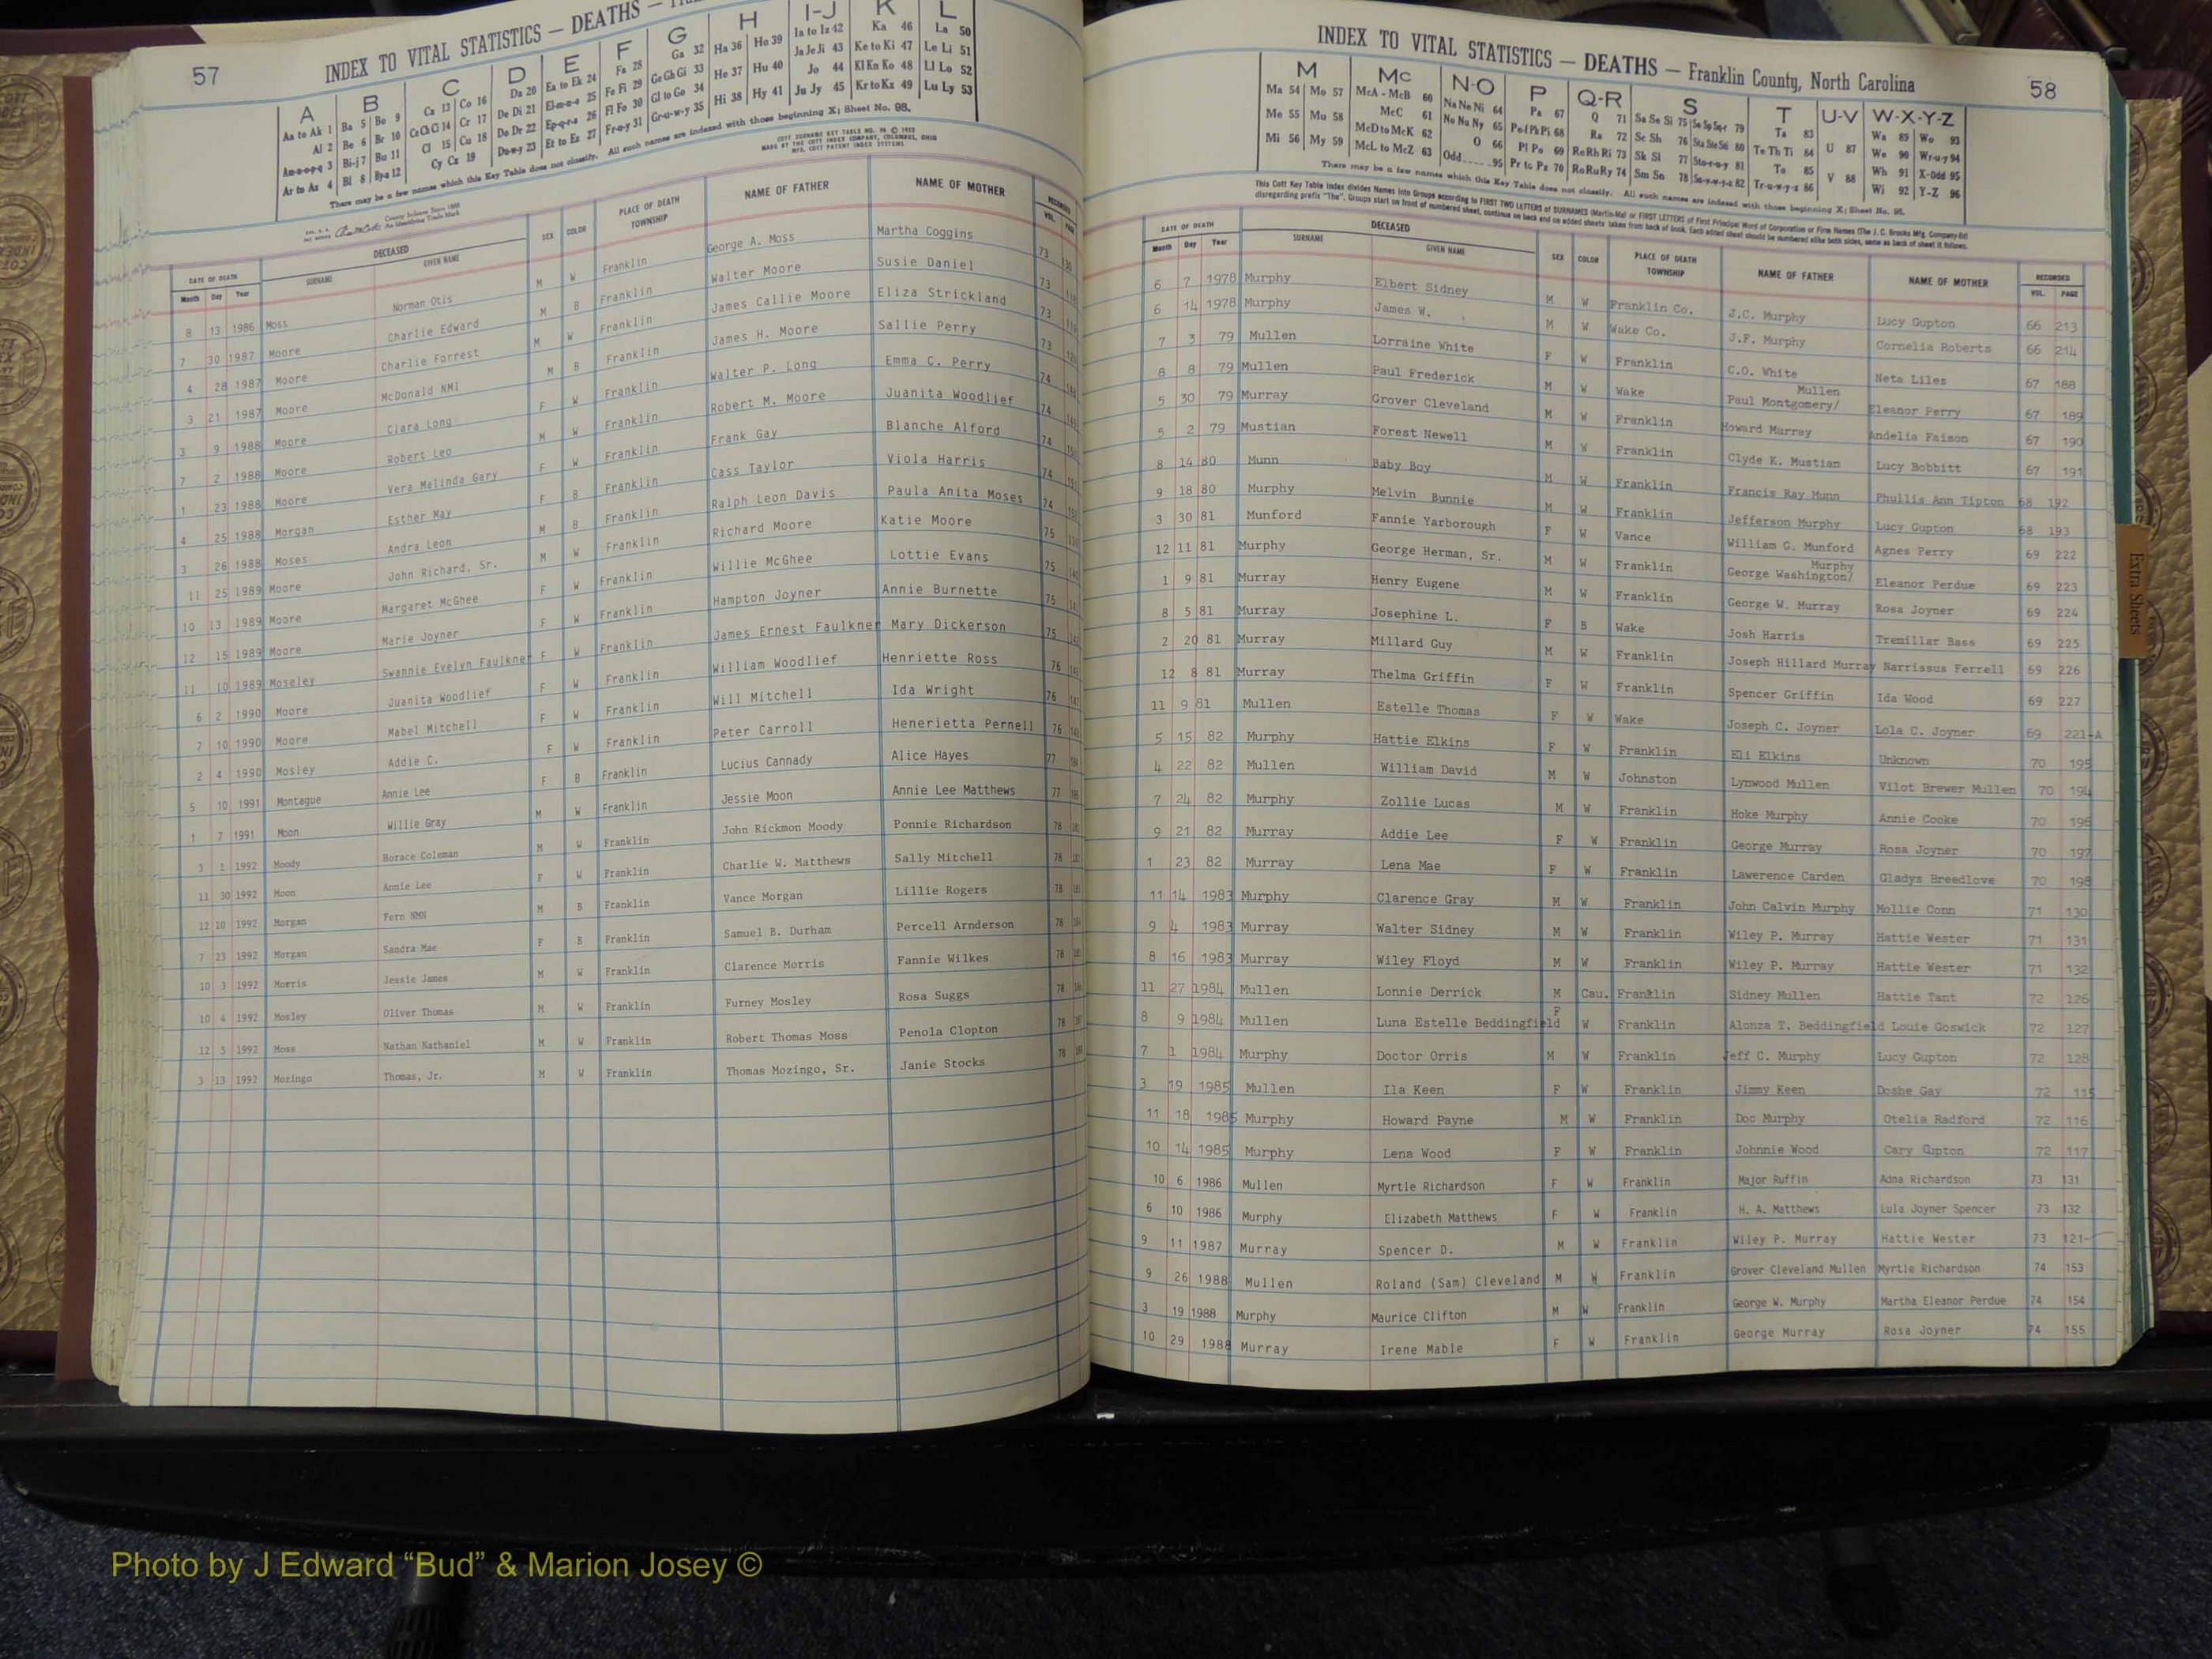 57
INDEX TO VITAL STATISTICS — DEATHS —
A B C D E F G H I-J K L
Aa to Ak 1 Ba 5 Bo 9 Ca 13 Co 16 Da 20 Ea to Ek 24 Fa 28 Ga 32 Ha 36 Ho 39 Ia to Iz 42 Ka 46 La 50
Al 2 Be 6 Br 10 Ce Ch Ci 14 Cr 17 De Di 21 El-m-n-o 25 Fe Fi 29 Ge Gh Gi 33 He 37 Hu 40 Ja Je Ji 43 Ke to Ki 47 Le Li 51
Am-n-o-p-q 3 Bi-j 7 Bu 11 Cl 15 Cu 18 Do Dr 22 Ep-q-r-s 26 Fl Fo 30 Gl to Go 34 Hi 38 Hy 41 Jo 44 Kl Kn Ko 48 Ll Lo 52
Ar to Az 4 Bl 8 By-z 12 Cy Cz 19 Du-w-y 23 Et to Ez 27 Fr-u-y 31 Gr-u-w-y 35 Ju Jy 45 Kr to Kz 49 Lu Ly 53
There may be a few names which this Key Table does not classify. All such names are indexed with those beginning X; Sheet No. 98.
COTT SURNAME KEY TABLE NO.
MADE BY THE COTT INDEX COMPANY, COLUMBUS, OHIO
DATE OF DEATH DECEASED SEX COLOR PLACE OF DEATH TOWNSHIP NAME OF FATHER NAME OF MOTHER RECORDED
Month Day Year SURNAME GIVEN NAME VOL. PAGE
8 13 1986 Moss Norman Otis M W Franklin George A. Moss Martha Coggins 73
7 30 1987 Moore Charlie Edward M B Franklin Walter Moore Susie Daniel 73
4 28 1987 Moore Charlie Forrest M W Franklin James Callie Moore Eliza Strickland 73
3 21 1987 Moore McDonald NMI M B Franklin James H. Moore Sallie Perry 73
3 9 1988 Moore Clara Long F W Franklin Walter P. Long Emma C. Perry 74
7 2 1988 Moore Robert Leo M W Franklin Robert M. Moore Juanita Woodlief 74
1 23 1988 Moore Vera Malinda Gary F W Franklin Frank Gay Blanche Alford 74
4 25 1988 Morgan Esther May F B Franklin Cass Taylor Viola Harris 74
3 26 1988 Moses Andra Leon M B Franklin Ralph Leon Davis Paula Anita Moses 74
11 25 1989 Moore John Richard, Sr. M W Franklin Richard Moore Katie Moore 75
10 13 1989 Moore Margaret McGhee F W Franklin Willie McGhee Lottie Evans 75
12 15 1989 Moore Marie Joyner F W Franklin Hampton Joyner Annie Burnette 75
11 10 1989 Moseley Swannie Evelyn Faulkner F W Franklin James Ernest Faulkner Mary Dickerson 75
6 2 1990 Moore Juanita Woodlief F W Franklin William Woodlief Henriette Ross 76
7 10 1990 Moore Mabel Mitchell F W Franklin Will Mitchell Ida Wright 76
2 4 1990 Mosley Addie C. F W Franklin Peter Carroll Henerietta Pernell 76
5 10 1991 Montague Annie Lee F B Franklin Lucius Cannady Alice Hayes 77
1 7 1991 Moon Willie Gray M W Franklin Jessie Moon Annie Lee Matthews 77
3 1 1992 Moody Horace Coleman M W Franklin John Rickmon Moody Ponnie Richardson 78
11 30 1992 Moon Annie Lee F W Franklin Charlie W. Matthews Sally Mitchell 78
12 10 1992 Morgan Fern NMN M B Franklin Vance Morgan Lillie Rogers 78
7 23 1992 Morgan Sandra Mae F B Franklin Samuel B. Durham Percell Arnderson 78
10 3 1992 Morris Jessie James M W Franklin Clarence Morris Fannie Wilkes 78
10 4 1992 Mosley Oliver Thomas M W Franklin Furney Mosley Rosa Suggs 78
12 5 1992 Moss Nathan Nathaniel M W Franklin Robert Thomas Moss Penola Clopton 78
3 13 1992 Mozingo Thomas, Jr. M W Franklin Thomas Mozingo, Sr. Janie Stocks 78
INDEX TO VITAL STATISTICS — DEATHS — Franklin County, North Carolina
58
M Mc N-O P Q-R S T U-V W-X-Y-Z
Ma 54 Mo 57 McA - McB 60 Na Ne Ni 64 Pa 67 Q 71 Sa Se Si 75 So Sp Sq-r 79 Ta 83 Wa 89 Wo 93
Me 55 Mu 58 McC 61 No Nu Ny 65 Pe-f Ph Pi 68 Ra 72 Sc Sh 76 Sta Ste S6 80 Te Th Ti 84 U 87 We 90 Wr-u-y 94
Mi 56 My 59 McD to McK 62 O 66 Pl Po 69 Re Rh Ri 73 Sk Sl 77 Sto-r-u-y 81 To 85 Wh 91 X-Odd 95
McL to McZ 63 Odd.....95 Pr to Pz 70 Ro Ru Ry 74 Sm Sn 78 Su-v-w-y-z 82 Tr-u-w-y-z 86 V 88 Wi 92 Y-Z 96
There may be a few names which this Key Table does not classify. All such names are indexed with those beginning X; Sheet No. 98.
This Cott Key Table Index divides Names into Groups according to FIRST TWO LETTERS of SURNAMES (Martin-Ma) or FIRST LETTERS of First Principal Word of Corporation or Firm Names (The J. C. Brooks Mfg. Company-Br)
disregarding prefix "The". Groups start on front of numbered sheet, continue on back and on added sheets taken from back of book. Each added sheet should be numbered alike both sides, same as back of sheet it follows.
DATE OF DEATH DECEASED SEX COLOR PLACE OF DEATH TOWNSHIP NAME OF FATHER NAME OF MOTHER RECORDED
Month Day Year SURNAME GIVEN NAME VOL. PAGE
6 7 1978 Murphy Elbert Sidney M W Franklin Co. J.C. Murphy Lucy Gupton 66 213
6 14 1978 Murphy James W. M W Wake Co. J.F. Murphy Cornelia Roberts 66 214
7 3 79 Mullen Lorraine White F W Franklin C.O. White Neta Liles 67 188
8 8 79 Mullen Paul Frederick M W Wake Paul Montgomery/ Mullen Eleanor Perry 67 189
5 30 79 Murray Grover Cleveland M W Franklin Howard Murray Andelia Faison 67 190
5 2 79 Mustian Forest Newell M W Franklin Clyde K. Mustian Lucy Bobbitt 67 191
8 14 80 Munn Baby Boy M W Franklin Francis Ray Munn Phullis Ann Tipton 68 192
9 18 80 Murphy Melvin Bunnie M W Franklin Jefferson Murphy Lucy Gupton 68 193
3 30 81 Munford Fannie Yarborough F W Vance William G. Munford Agnes Perry 69 222
12 11 81 Murphy George Herman, Sr. M W Franklin George Washington/ Murphy Eleanor Perdue 69 223
1 9 81 Murray Henry Eugene M W Franklin George W. Murray Rosa Joyner 69 224
8 5 81 Murray Josephine L. F B Wake Josh Harris Tremillar Bass 69 225
2 20 81 Murray Millard Guy M W Franklin Joseph Hillard Murray Narrissus Ferrell 69 226
12 8 81 Murray Thelma Griffin F W Franklin Spencer Griffin Ida Wood 69 227
11 9 81 Mullen Estelle Thomas F W Wake Joseph C. Joyner Lola C. Joyner 69 221-A
5 15 82 Murphy Hattie Elkins F W Franklin Eli Elkins Unknown 70 195
4 22 82 Mullen William David M W Johnston Lynwood Mullen Vilot Brewer Mullen 70 194
7 24 82 Murphy Zollie Lucas M W Franklin Hoke Murphy Annie Cooke 70 196
9 21 82 Murray Addie Lee F W Franklin George Murray Rosa Joyner 70 197
1 23 82 Murray Lena Mae F W Franklin Lawerence Carden Gladys Breedlove 70 198
11 14 1983 Murphy Clarence Gray M W Franklin John Calvin Murphy Mollie Conn 71 130
9 4 1983 Murray Walter Sidney M W Franklin Wiley P. Murray Hattie Wester 71 131
8 16 1983 Murray Wiley Floyd M W Franklin Wiley P. Murray Hattie Wester 71 132
11 27 1984 Mullen Lonnie Derrick M Cau. Franklin Sidney Mullen Hattie Tant 72 126
8 9 1984 Mullen Luna Estelle Beddingfield F W Franklin Alonza T. Beddingfield Louie Goswick 72 127
7 1 1984 Murphy Doctor Orris M W Franklin Jeff C. Murphy Lucy Gupton 72 128
3 19 1985 Mullen Ila Keen F W Franklin Jimmy Keen Doshe Gay 72 115
11 18 1985 Murphy Howard Payne M W Franklin Doc Murphy Otelia Radford 72 116
10 14 1985 Murphy Lena Wood F W Franklin Johnnie Wood Cary Gupton 72 117
10 6 1986 Mullen Myrtle Richardson F W Franklin Major Ruffin Adna Richardson 73 131
6 10 1986 Murphy Elizabeth Matthews F W Franklin H. A. Matthews Lula Joyner Spencer 73 132
9 11 1987 Murray Spencer D. M W Franklin Wiley P. Murray Hattie Wester 73 121
9 26 1988 Mullen Roland (Sam) Cleveland M W Franklin Grover Cleveland Mullen Myrtle Richardson 74 153
3 19 1988 Murphy Maurice Clifton M W Franklin George W. Murphy Martha Eleanor Perdue 74 154
10 29 1988 Murray Irene Mable F W Franklin George Murray Rosa Joyner 74 155
Extra Sheets
Photo by J Edward “Bud” & Marion Josey ©